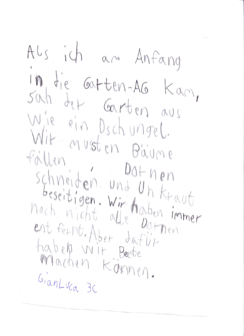 Als ich am Anfang
in die Garten-AG kam,
sah der Garten aus
wie ein Dschungel.
Wir musten Bäume
fällen, Dornen
schneiden und Unkraut
beseitigen. Wir haben immer
noch nicht alle Dornen
entfernt. Aber dafür
haben wir Beete
machen können.
GianLuca 3c